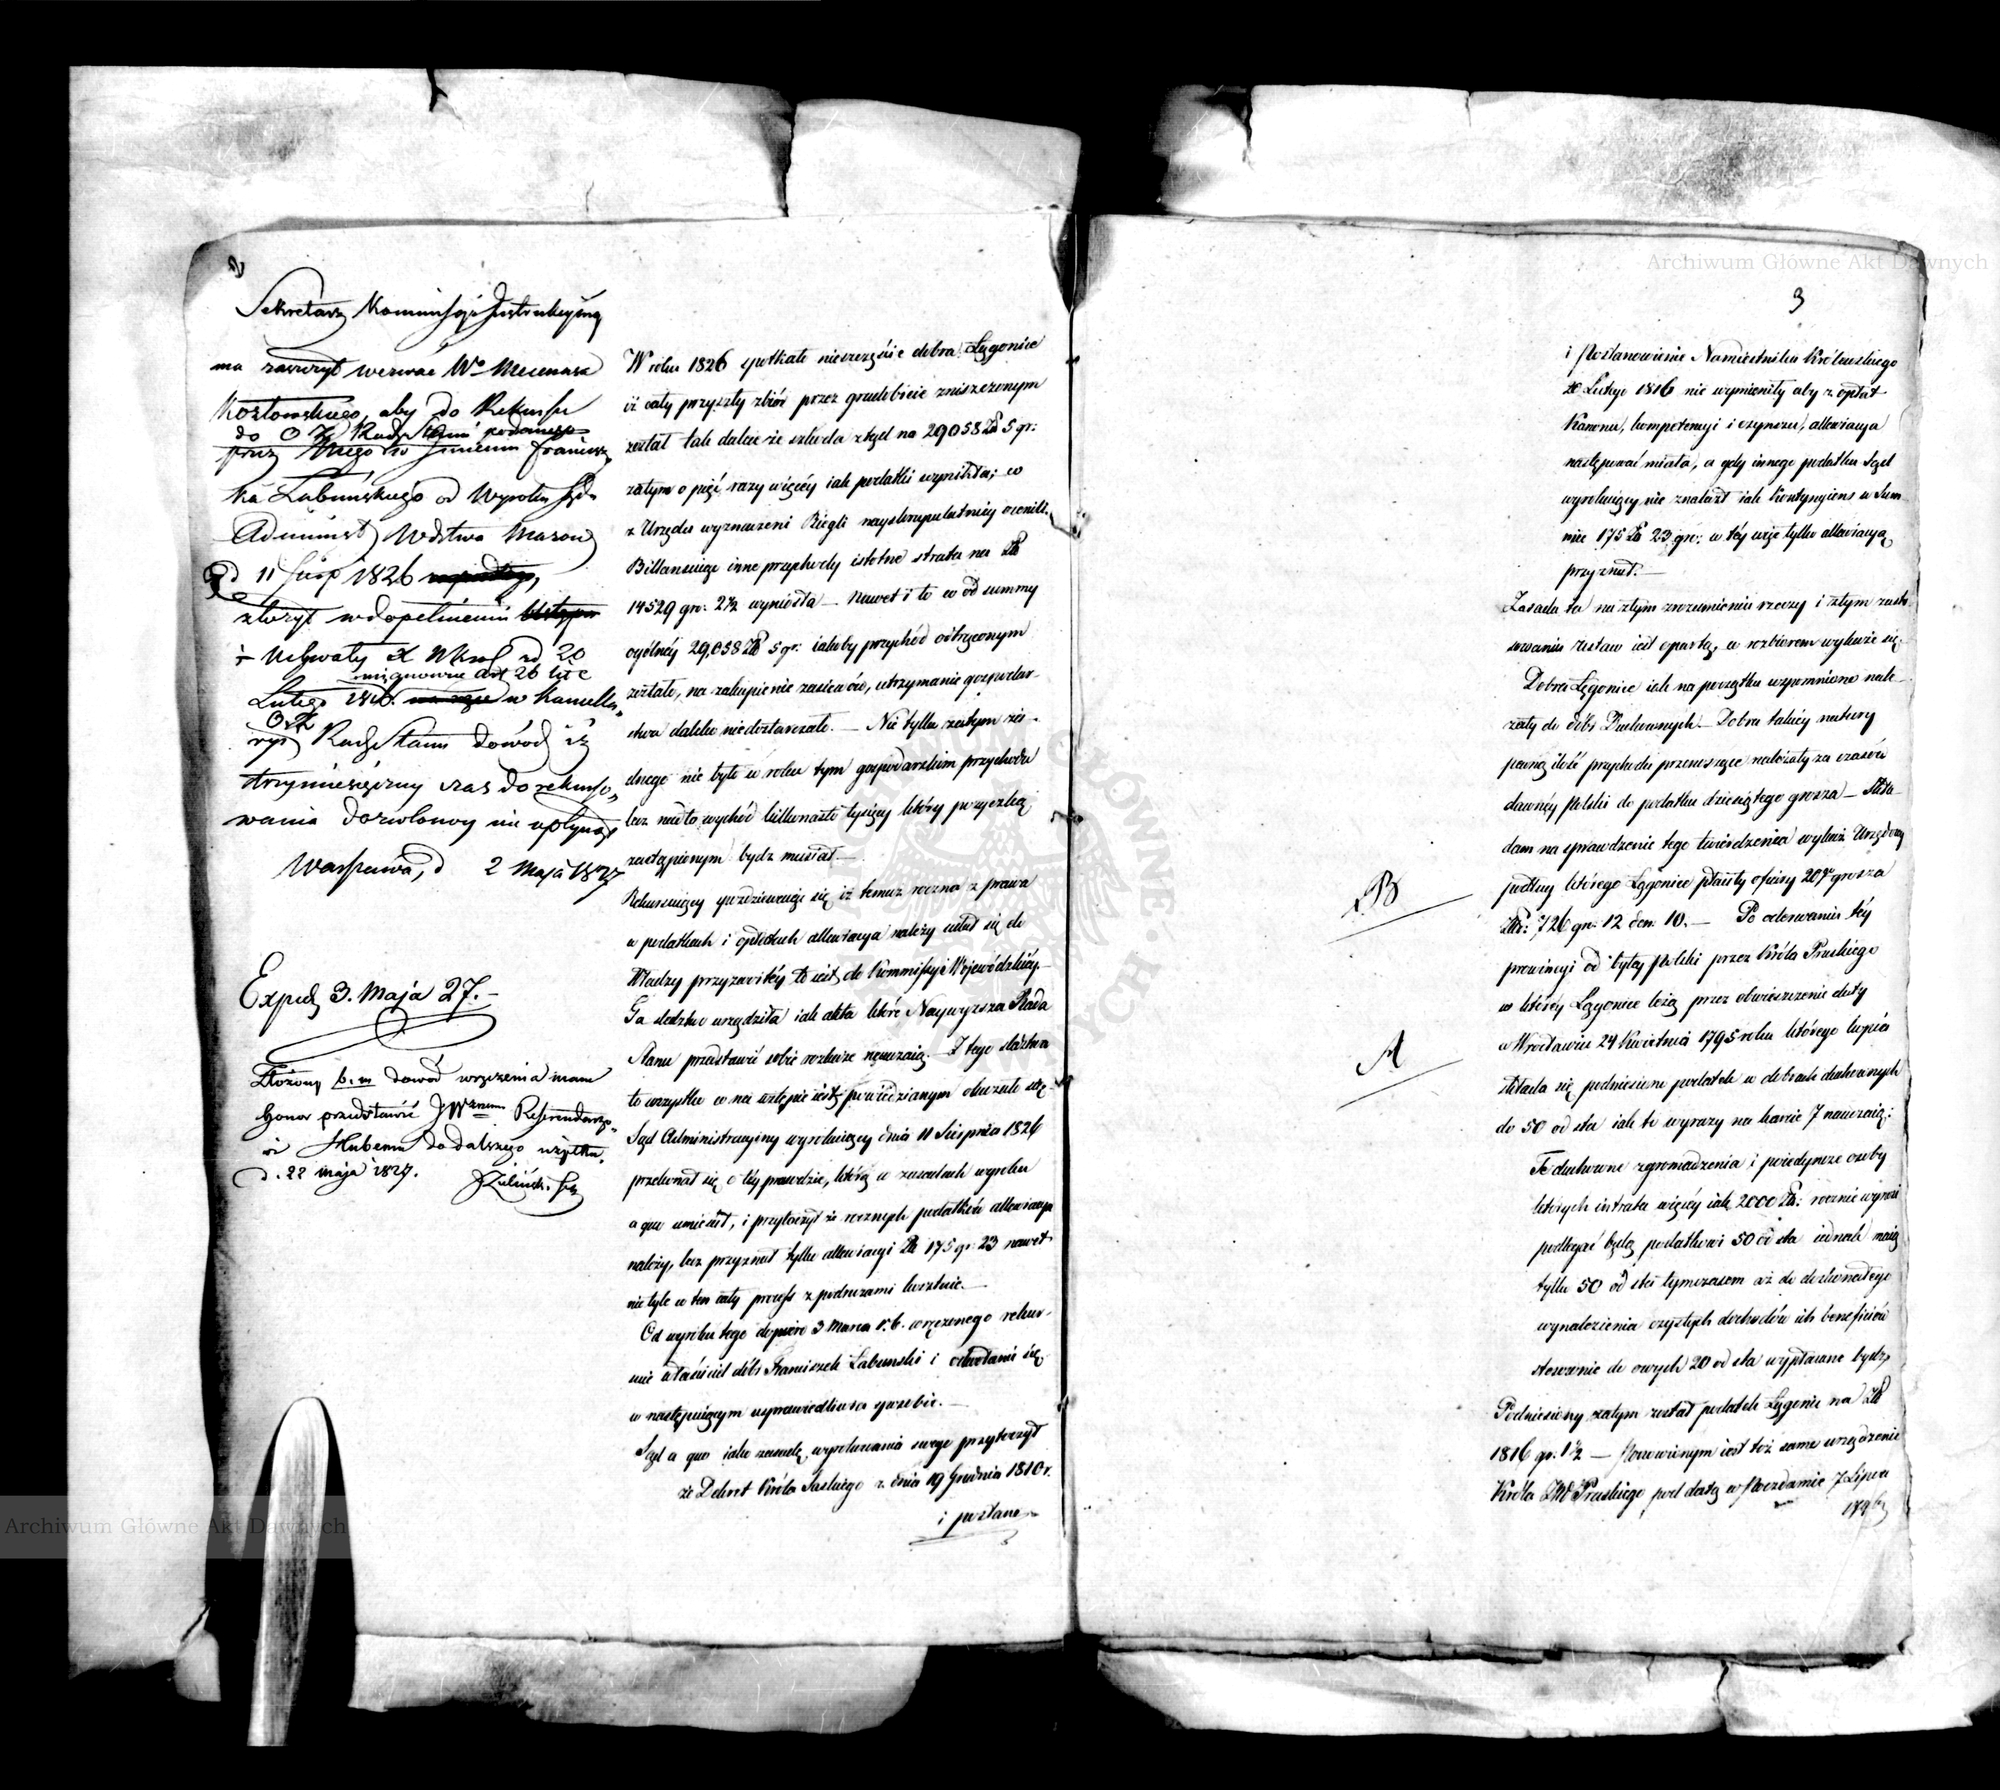 Sekretarz Kommissyi Instrukcyjnej
ma zaszczyt wezwać Wo Mecenasa
Kozłowskiego, aby do Rekursu
do O Z Rady Stanu podanego
przez niego w Imieniu Francisz
ka Łabuńskiego od Wyroku Sądu
Administ Wdztwa Mazow
d 11 Sierp 1826
złożył w dopełnieniu
Uchwały X Nkról z d 20
mianowicie art 26 lit c
Lutego 1816. w Kancella
O Z
ryi Rady Stanu dowód iż
trzymiesięczny czas do rekurso
wania dozwolony nie upłynął
Warszawa, d 2 Maja 1827
Exped 3. Maja 27.
Złożony b. m dowód wręczenia mam
honor przedstawić JWmu Referendarzo
wi Hubemu do dalszego użytku.
d. 22 maja 1827. Zieliński
W roku 1826 spotkało nieszczęście dobra Łęgonice
iż cały przyszły zbiór przez gradobicie zniszczonym
został tak dalece że szkoda ztąd na 29058 Zł 5 gr:
zatym o pięć razy więcéy iak podatki wynikła; co
z Urzędu wyznaczeni Biegli nayskrupulatniéy ocenili.
Billansuiąc inne przychody istotna strata na Zł
14529 gr: 2½ wyniosła – Nawet i to co od summy
ogólnéy 29,058 Zł 5 gr: iakoby przychód odtrąconym
zostało, na zakupienie zasiewów, utrzymanie gospodar-
stwa daleko niedostarczało. – Nie tylko zatym żą-
dnego nie było w roku tym gospodarskim przychodu
lecz nadto wychód kilkunastu tysięcy który pożyczką
zastąpionym bydź musiał. –
Rekursuiący spodziewaiąc się iż temuż roczna z prawa
w podatkach i opłatach allewiacya należy udał się do
Władzy przyzwoitéy to iest do Kommissyi Woiewódzkiéy.
Ta śledztwo urządziła iak akta które Naywyższa Rada
Stanu przedstawić sobie rozkaże nauczaią. – Z tego śledztwa
to wszystko co na wstępie iest powiedzianym okazało się.
Sąd Administracyiny wyrokuiący dnia 11 Sierpnia 1826
przekonał się o téy prawdzie, którą w zasadach wyroku
a quo umieścił, i przytoczył że rocznych podatków allewiacya
należy, lecz przyznał tylko allewiacyi Zł 175 gr 23 nawet
nie tyle co ten cały process z podróżami kosztuie. –
Od wyroku tego dopiero 3 Marca r. b. wręczonego rekur-
suie właściciel dóbr Franciszek Łabuński i odwołanie się
w następuiącym usprawiedliwia sposobie. –
Sąd a quo iako zasadę wyrokowania swego przytoczył
że Dekret Króla Saskiego z dnia 19 Grudnia 1810 r.
i postano
3
i Postanowienie Namiestnika Królewskiego
20 Lutego 1816 nie wymieniły aby z opłat
Kanonu, kompetencyi i czynszu, allewiacya
następować miała, a gdy innego podatku Sąd
wyrokuiący nie znalazł iak Kontyngiens w Sum-
mie 175 Zł 23 gr: w téy więc tylko allewiacyą
przyznał. –
Zasada ta na złym zrozumieniu rzeczy i złym zasto-
sowaniu ustaw iest opartą, co rozbiorem wykaże się.
Dobra Łęgonice iak na początku wspomniono nale-
żały do dóbr Duchownych – Dobra takiéy natury
pewną ilość przychodu przenoszące należały za czasów
dawnéy Polski do podatku dziesiątego grosza – Skła-
dam na sprawdzenie tego twierdzenia wykaz Urzędowy
podług którego Łęgonice płaciły ofiary 20go grosza
Złł: 726 gr: 12 den: 10. – Po oderwaniu téy
prowincyi od byłéy Polski przez Króla Pruskiego
w któréy Łęgonice leżą przez obwieszczenie daty
w Wrocławiu 24 Kwietnia 1795 roku którego kopia
składa się podniesiono podatek w dobrach duchownych
do 50 od sta iak te wyrazy na karcie 7 nauczaią:
Te duchowne zgromadzenia i poiedyncze osoby
których intrata więcéy iak 2000 Zł: rocznie wynosi
podlegać będą podatkowi 50 od sta iednak maią
tylko 50 od sta tymczasem aż do doskonałego
wynalezienia czystych dochodów ich beneficiów
stosownie do owych 20 od sta wypłacane bydź
Podniesiony zatym został podatek Łęgonic na Zł
1816 gr. 1½ – Ponowionym iest toż samo urządzenie
Króla JM Pruskiego pod datą w Poczdamie 7 Lipca
1796
B
A
Archiwum Główne Akt Dawnych
Archiwum Główne Akt Dawnych